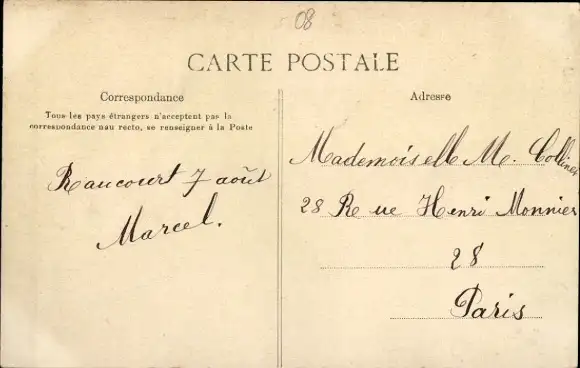 08
CARTE POSTALE
Correspondance
Tous les pays étrangers n'acceptent pas la
correspondance nau recto, se renseigner à la Poste
Raucourt 7 août
Marcel.
Adresse
Mademoiselle M. Collinet
28 Rue Henri Monnier
28
Paris